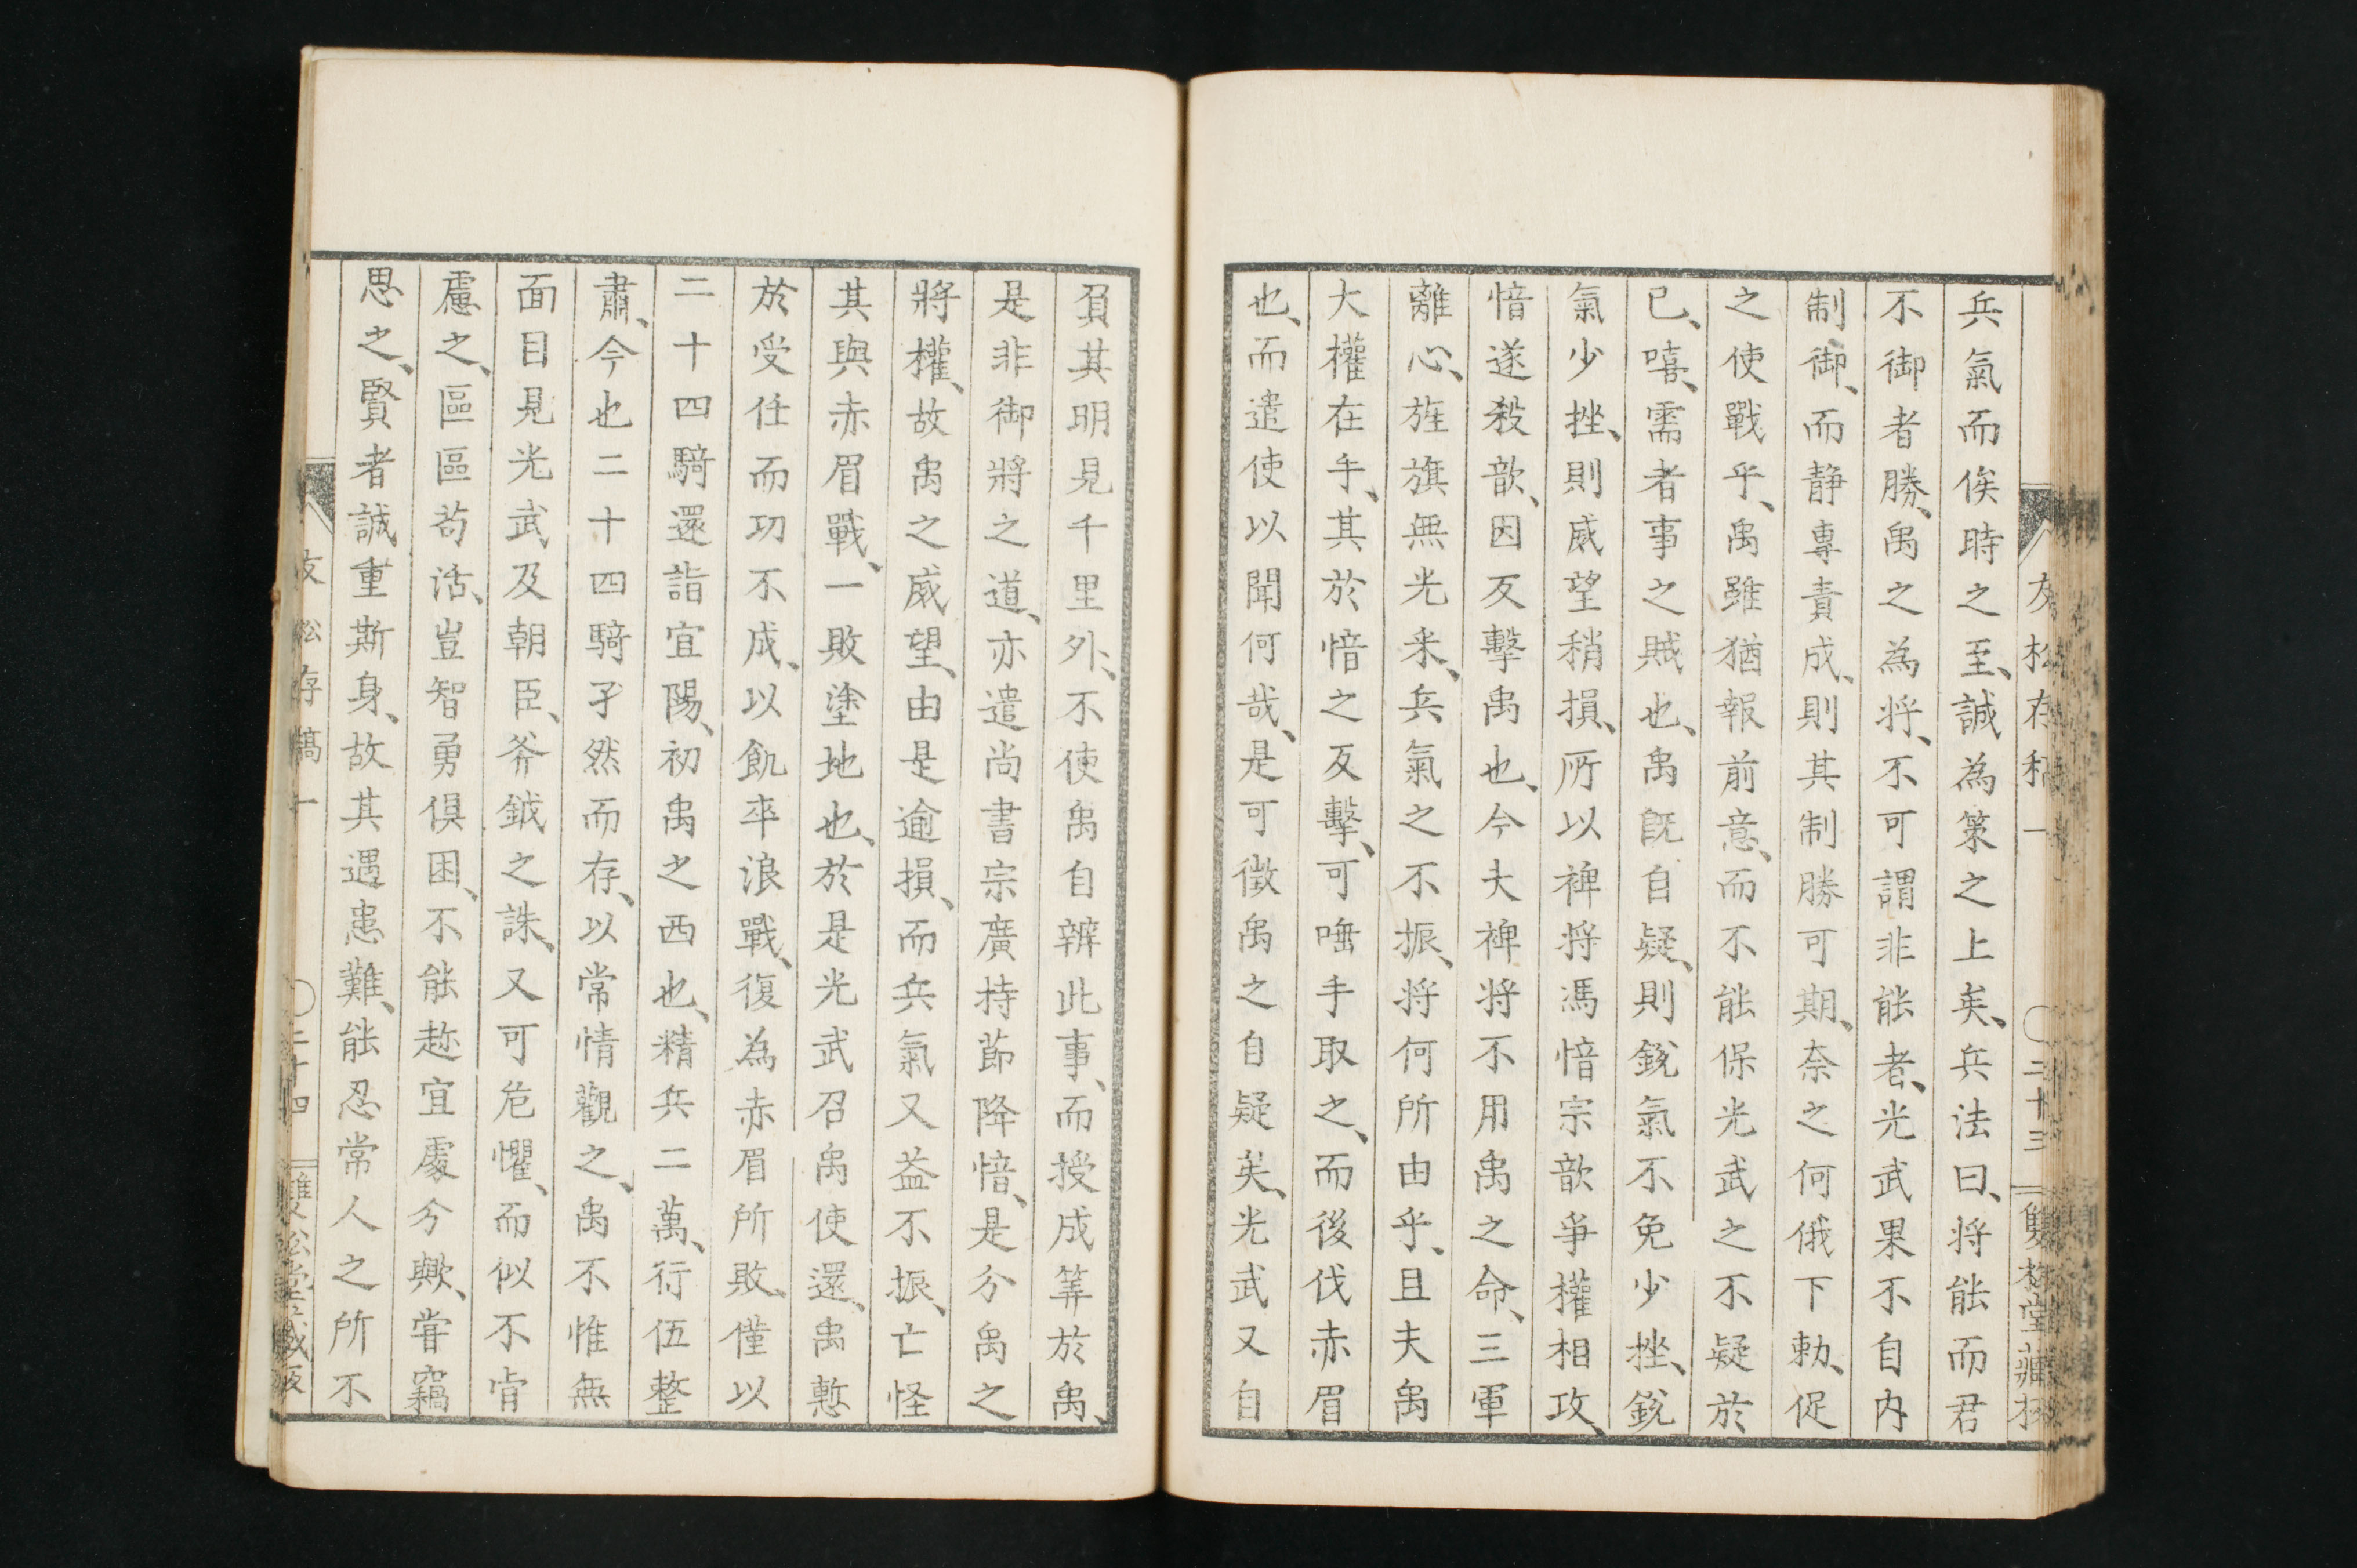 兵氣而俟時之至、誠為策之上矣、兵法曰、将能而君
不御者勝、禹之為将、不可謂非能者、光武果不自内
制御、而静專責成、則其制勝可期、奈之何俄下勅、促
之使戰乎、禹雖猶報前意、而不能保光武之不疑於
已、嘻、需者事之賊也、禹既自疑、則銳氣不免少挫、銳
氣少挫、則威望稍損、所以裨将馮愔宗歆爭權相攻、
愔遂殺歆、因反擊禹也、今夫裨将不用禹之命、三軍
離心、旌旗無光采、兵氣之不振、将何所由乎、且夫禹
大權在手、其於愔之反擊、可唾手取之、而後伐赤眉
也、而遣使以聞何哉、是可徵禹之自疑矣、光武又自
負其明見千里外、不使禹自辨此事、而授成筭於禹、
是非御將之道、亦遣尚書宗廣持節降愔、是分禹之
將權、故禹之威望、由是逾損、而兵氣又益不振、亡怪
其與赤眉戰、一敗塗地也、於是光武召禹使還、禹慙
於受任而功不成、以飢卒浪戰、復為赤眉所敗、僅以
二十四騎還詣宜陽、初禹之西也、精兵二萬、行伍整
肅、今也二十四騎孑然而存、以常情觀之、禹不惟無
面目見光武及朝臣、斧鉞之誅、又可危懼、而似不肯
慮之、區區苟活、豈智勇俱困、不能趂宜處分歟、甞竊
思之、賢者誠重斯身、故其遇患難、能忍常人之所不
友松存稿一
〇二十三
雙松堂藏板
松存稿一
〇二十四
雙松堂藏板